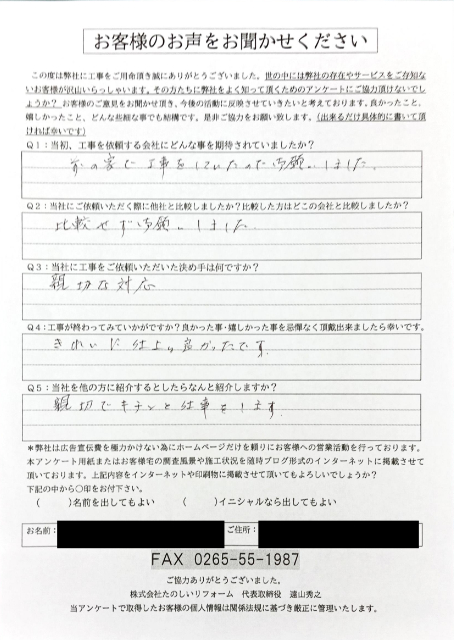 お客様のお声をお聞かせください
この度は弊社に工事をご用命頂き誠にありがとうございました。世の中には弊社の存在やサービスをご存知な
いお客様が沢山いらっしゃいます。その方たちに弊社をよく知って頂くためのアンケートにご協力頂けないでし
ょうか？ お客様のご意見をお聞かせ頂き、今後の活動に反映させていきたいと考えております。良かったこと、
嬉しかったこと、どんな些細な事でも結構です。是非ご協力をお願い致します。（出来るだけ具体的に書いて頂
ければ幸いです）
Q1：当初、工事を依頼する会社にどんな事を期待されていましたか？
前の家で工事をしていたので御願いしました。
Q2：当社にご依頼いただく際に他社と比較しましたか？比較した方はどこの会社と比較しましたか？
比較せず御願いしました
Q3：当社に工事をご依頼いただいた決め手は何ですか？
親切な対応
Q4：工事が終わってみていかがですか？良かった事・嬉しかった事を忌憚なく頂戴出来ましたら幸いです。
きれいに仕上り良かったです。
Q5：当社を他の方に紹介するとしたらなんと紹介しますか？
親切でキチンと仕事をします。
＊弊社は広告宣伝費を極力かけない為にホームページだけを頼りにお客様への営業活動を行っております。
本アンケート用紙またはお客様宅の調査風景や施工状況を随時ブログ形式のインターネットに掲載させて
頂いております。上記内容をインターネットや印刷物に掲載させて頂いてもよろしいでしょうか？
下記の中から○印をお付下さい。
（　　）名前を出してもよい　（　　）イニシャルなら出してもよい
お名前：　ご住所：
FAX 0265-55-1987
ご協力ありがとうございました。
株式会社たのしいリフォーム　代表取締役　遠山秀之
当アンケートで取得したお客様の個人情報は関係法規に基づき厳正に管理いたします。